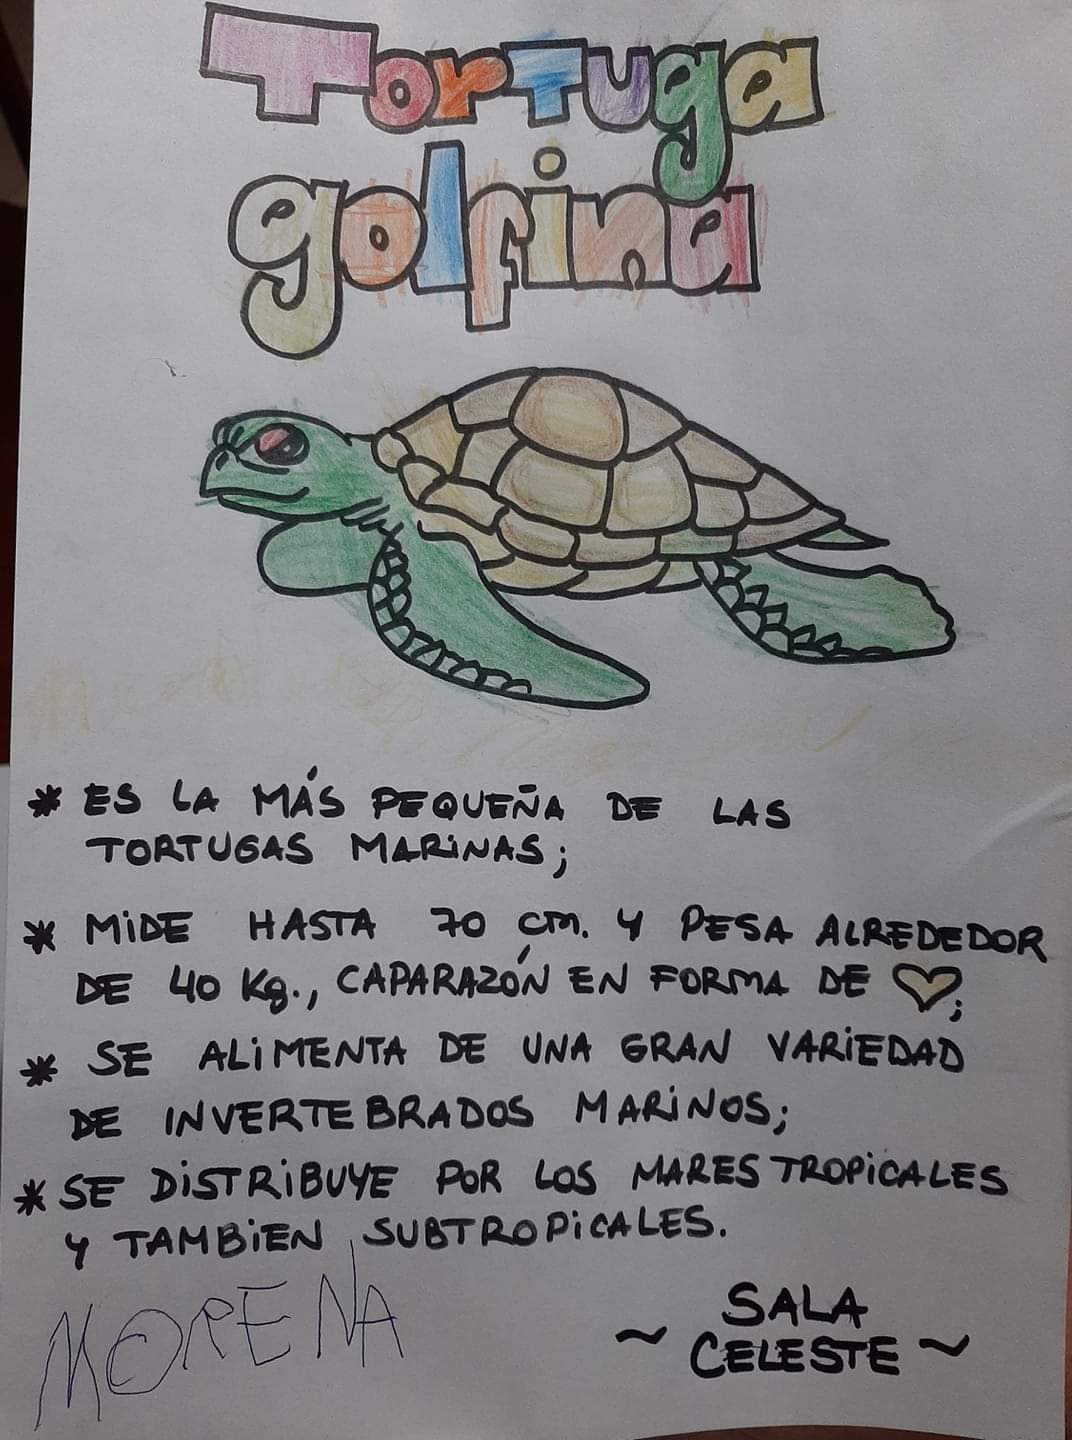 Tortuga
golfina
* ES LA MÁS PEQUEÑA DE LAS
TORTUGAS MARINAS;
* MIDE HASTA 70 cm. Y PESA ALREDEDOR
DE 40 Kg., CAPARAZÓN EN FORMA DE ♡;
* SE ALIMENTA DE UNA GRAN VARIEDAD
DE INVERTEBRADOS MARINOS;
* SE DISTRIBUYE POR LOS MARES TROPICALES
Y TAMBIEN SUBTROPICALES.
MORENA
SALA
~ CELESTE ~